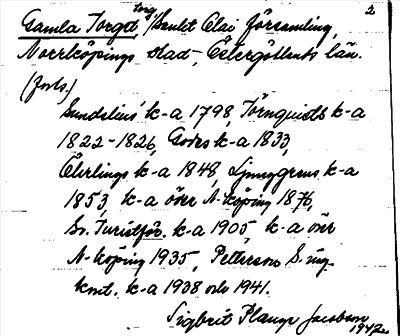 2
torg
Gamla Torget /Sankt Olai församling,
Norrköpings stad, Östergötlands län.
(forts.)
Sundelius' k-a 1798, Törnquists k-a
1822-1826, Godes k-a 1833,
Öhrlings k-a 1848, Ljunggrens k-a
1853, k-a över N-köping 1876,
Sv. Turistför. k-a 1905, k-a över
N-köping 1935, Petterson S. ing.
kont. k-a 1938 och 1941.
Sigbrit Plange Jacobson
1942